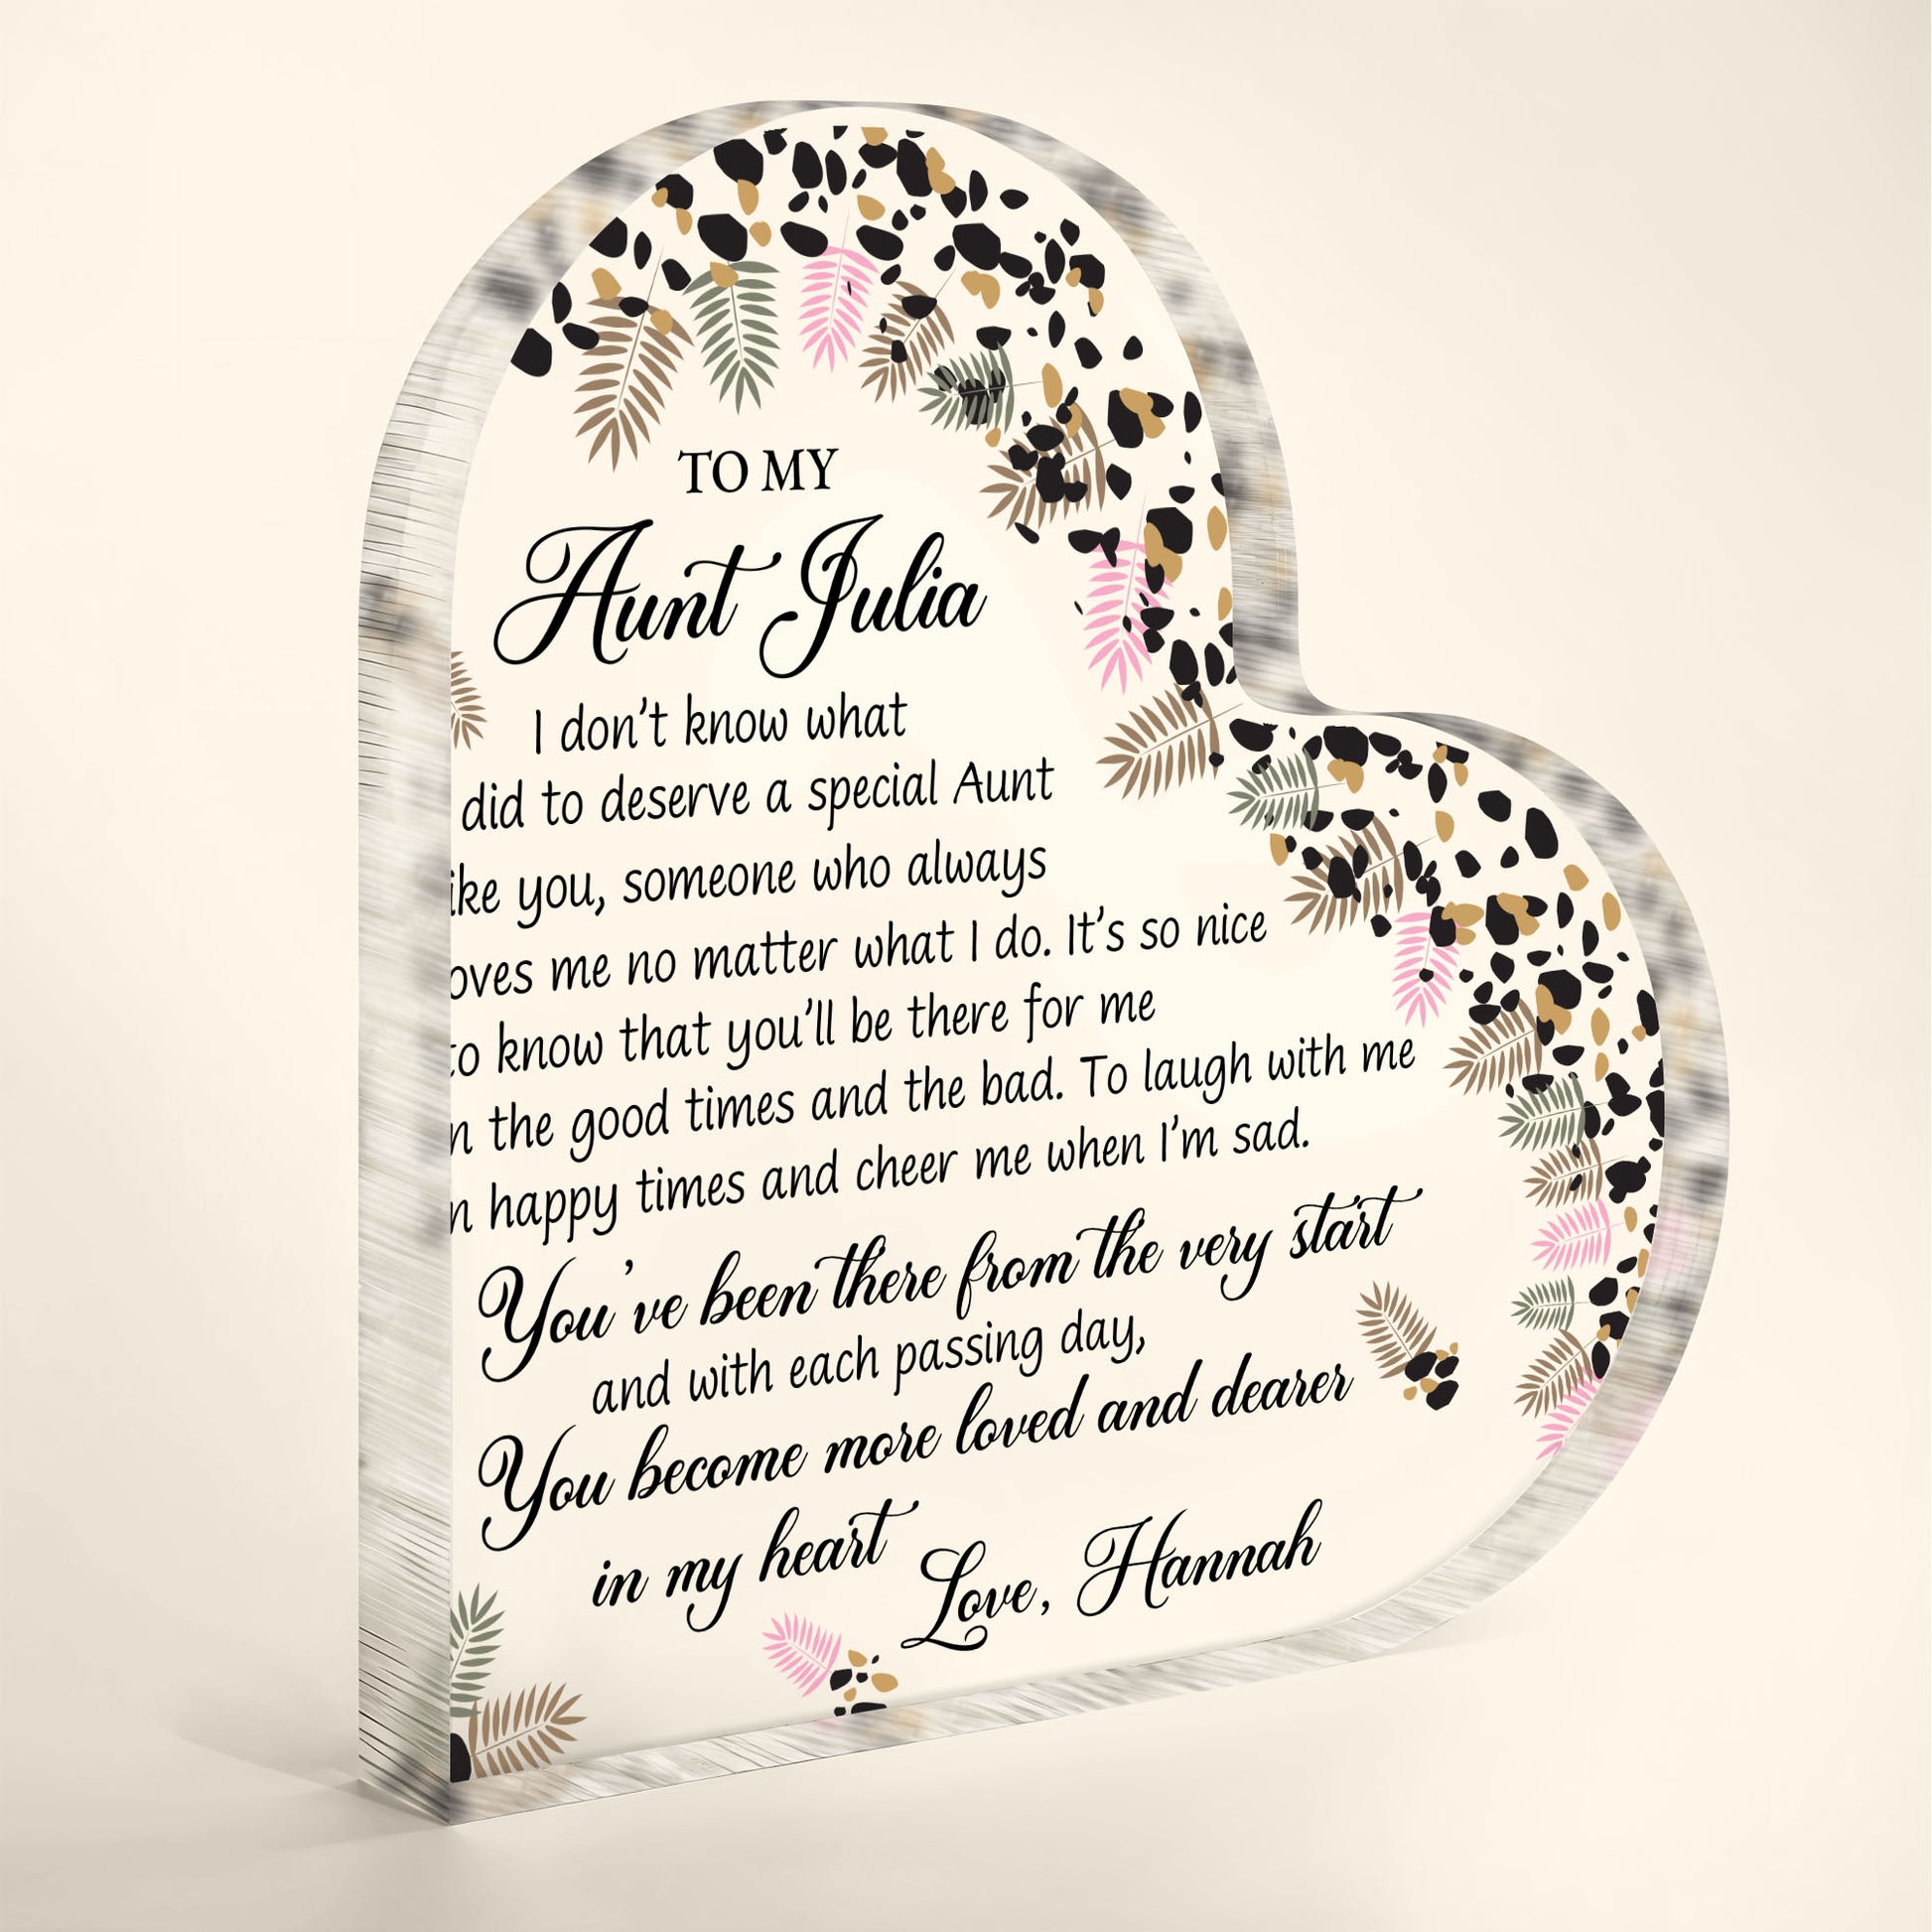 TO MY
Aunt Julia
I don't know what
did to deserve a special Aunt
ike you, someone who always
oves me no matter what I do. It's so nice
to know that you'll be there for me
n the good times and the bad. To laugh with me
n happy times and cheer me when I'm sad.
You've been there from the very start
and with each passing day,
You become more loved and dearer
in my heart
Love, Hannah